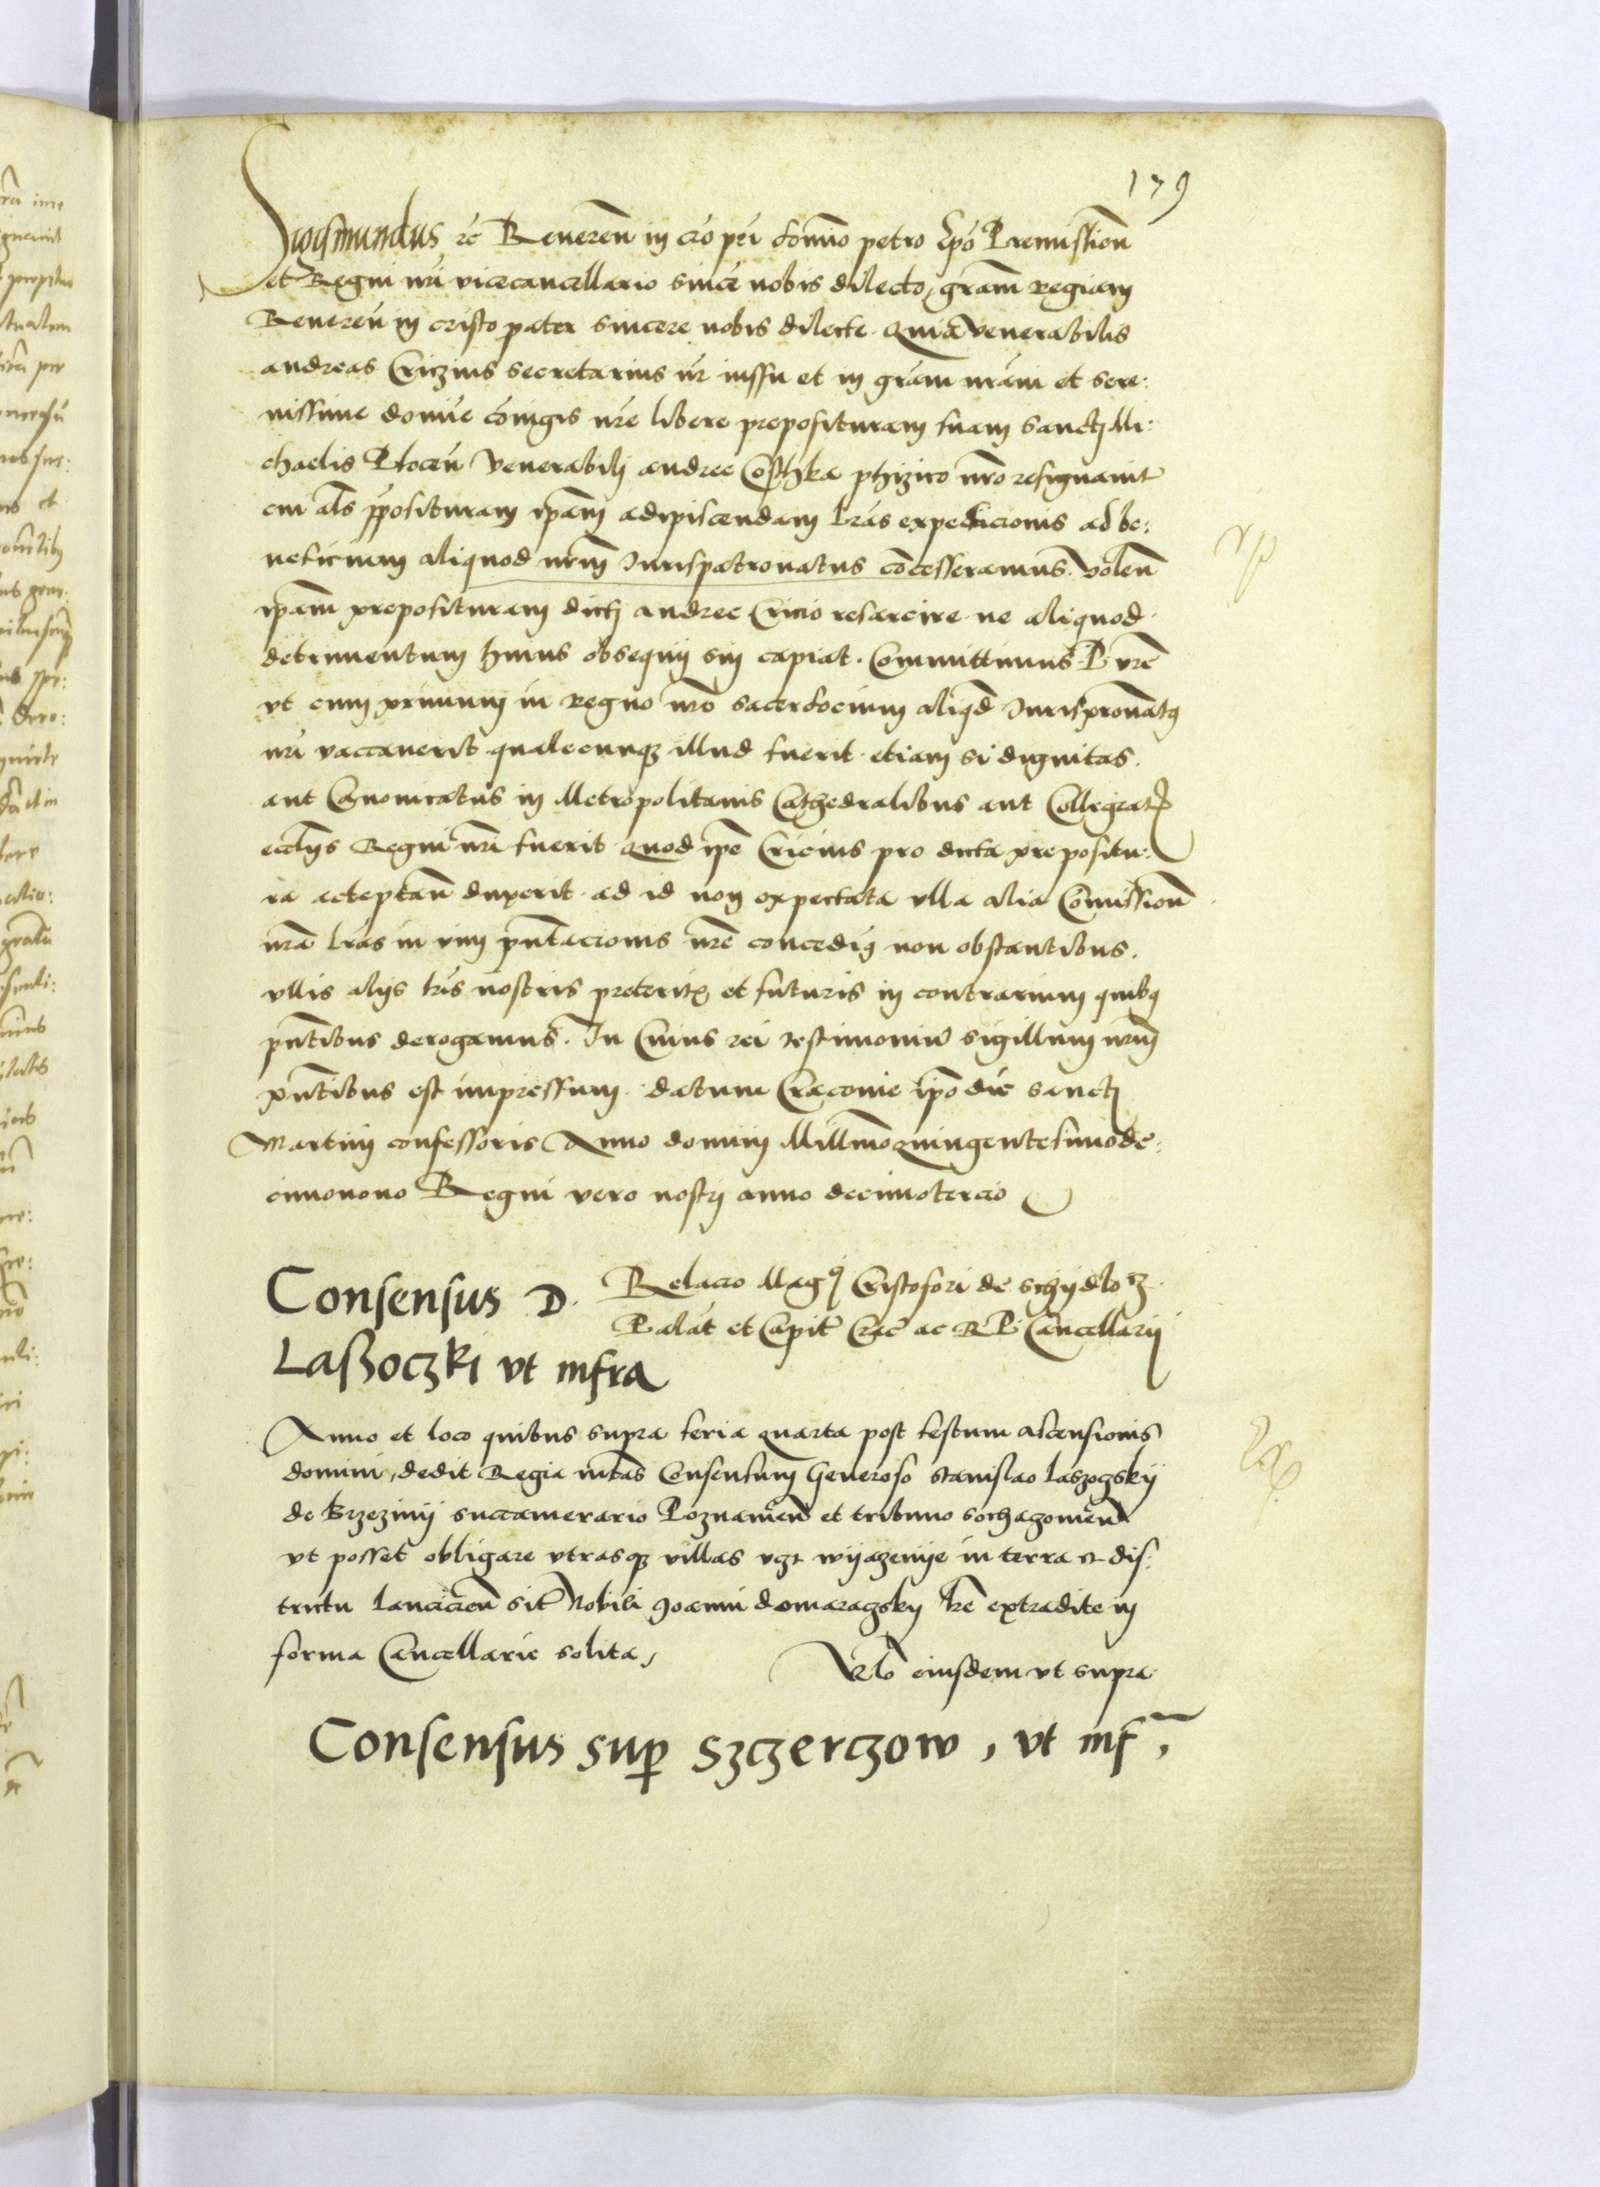 179
Sigismundus rc Reveren in cro pri domino petro Epo Premislien
et Regni nri vicecancellario since nobis dilecto, gram regiam
Reveren in cristo pater sincere nobis dilecte. quia venerabilis
andreas Criczius secretarius nr iussu et in gram nram et sere:
nissime domine coniugis nre libere preposituram suam sancti Mi:
chaelis Plocen Venerabili andree Coschka phizico nro resignavit
cui als pposituram ipam adipiscendam lras expedicionis ad be:
neficium aliquod nrum Iurispatronatus concesseramus. volen
ipam preposituram dicti andree Cricio resarcire ne aliquod
detrimentum huius obsequii sui capiat. Committimus P vre
vt cum primum in regno nro sacerdocium aliqd Iurispronatus
nri vaccaverit qualecunque illud fuerit etiam si dignitas.
aut Canonicatus in Metropolitanis Cathedralibus aut Collegiat
ecclys Regni nri fuerit quod ipe Cricius pro dicta prepositu:
ra acceptan duxerit ad id non expectata vlla alia Comission
nra lras in vim pntacionis nre concedi non obstantibus.
vllis alys lris nostris preterit et futuris in contrarium quibus
pntibus derogamus. In Cuius rei testimonium sigillum nrum
pntibus est impressum. datum Cracovie ipo die sancti
Martini confessoris Anno domini Millmo quingentesimo de:
cimonono Regni vero nostri anno decimotercio
Consensus D.
Relacio Mag Cristofori de schydlo
Palat et Capit Crac ac RP Cancellarii
Laszoczki vt infra
Anno et loco quibus supra feria quarta post festum ascensionis
domini, dedit Regia mtas Consensum Generoso stanislao Laszogskij
de Brzezinij succamerario Poznanien et tribuno sochagovien
vt posset obligare vtrasque villas vgt wijazenije in terra et dis:
trictu lancicien sit Nobili Joanni domaragsky lre extradite in
forma Cancellarie solita,
Rlo eiusdem vt supra
Consensus sup Szczerczow, vt inf,